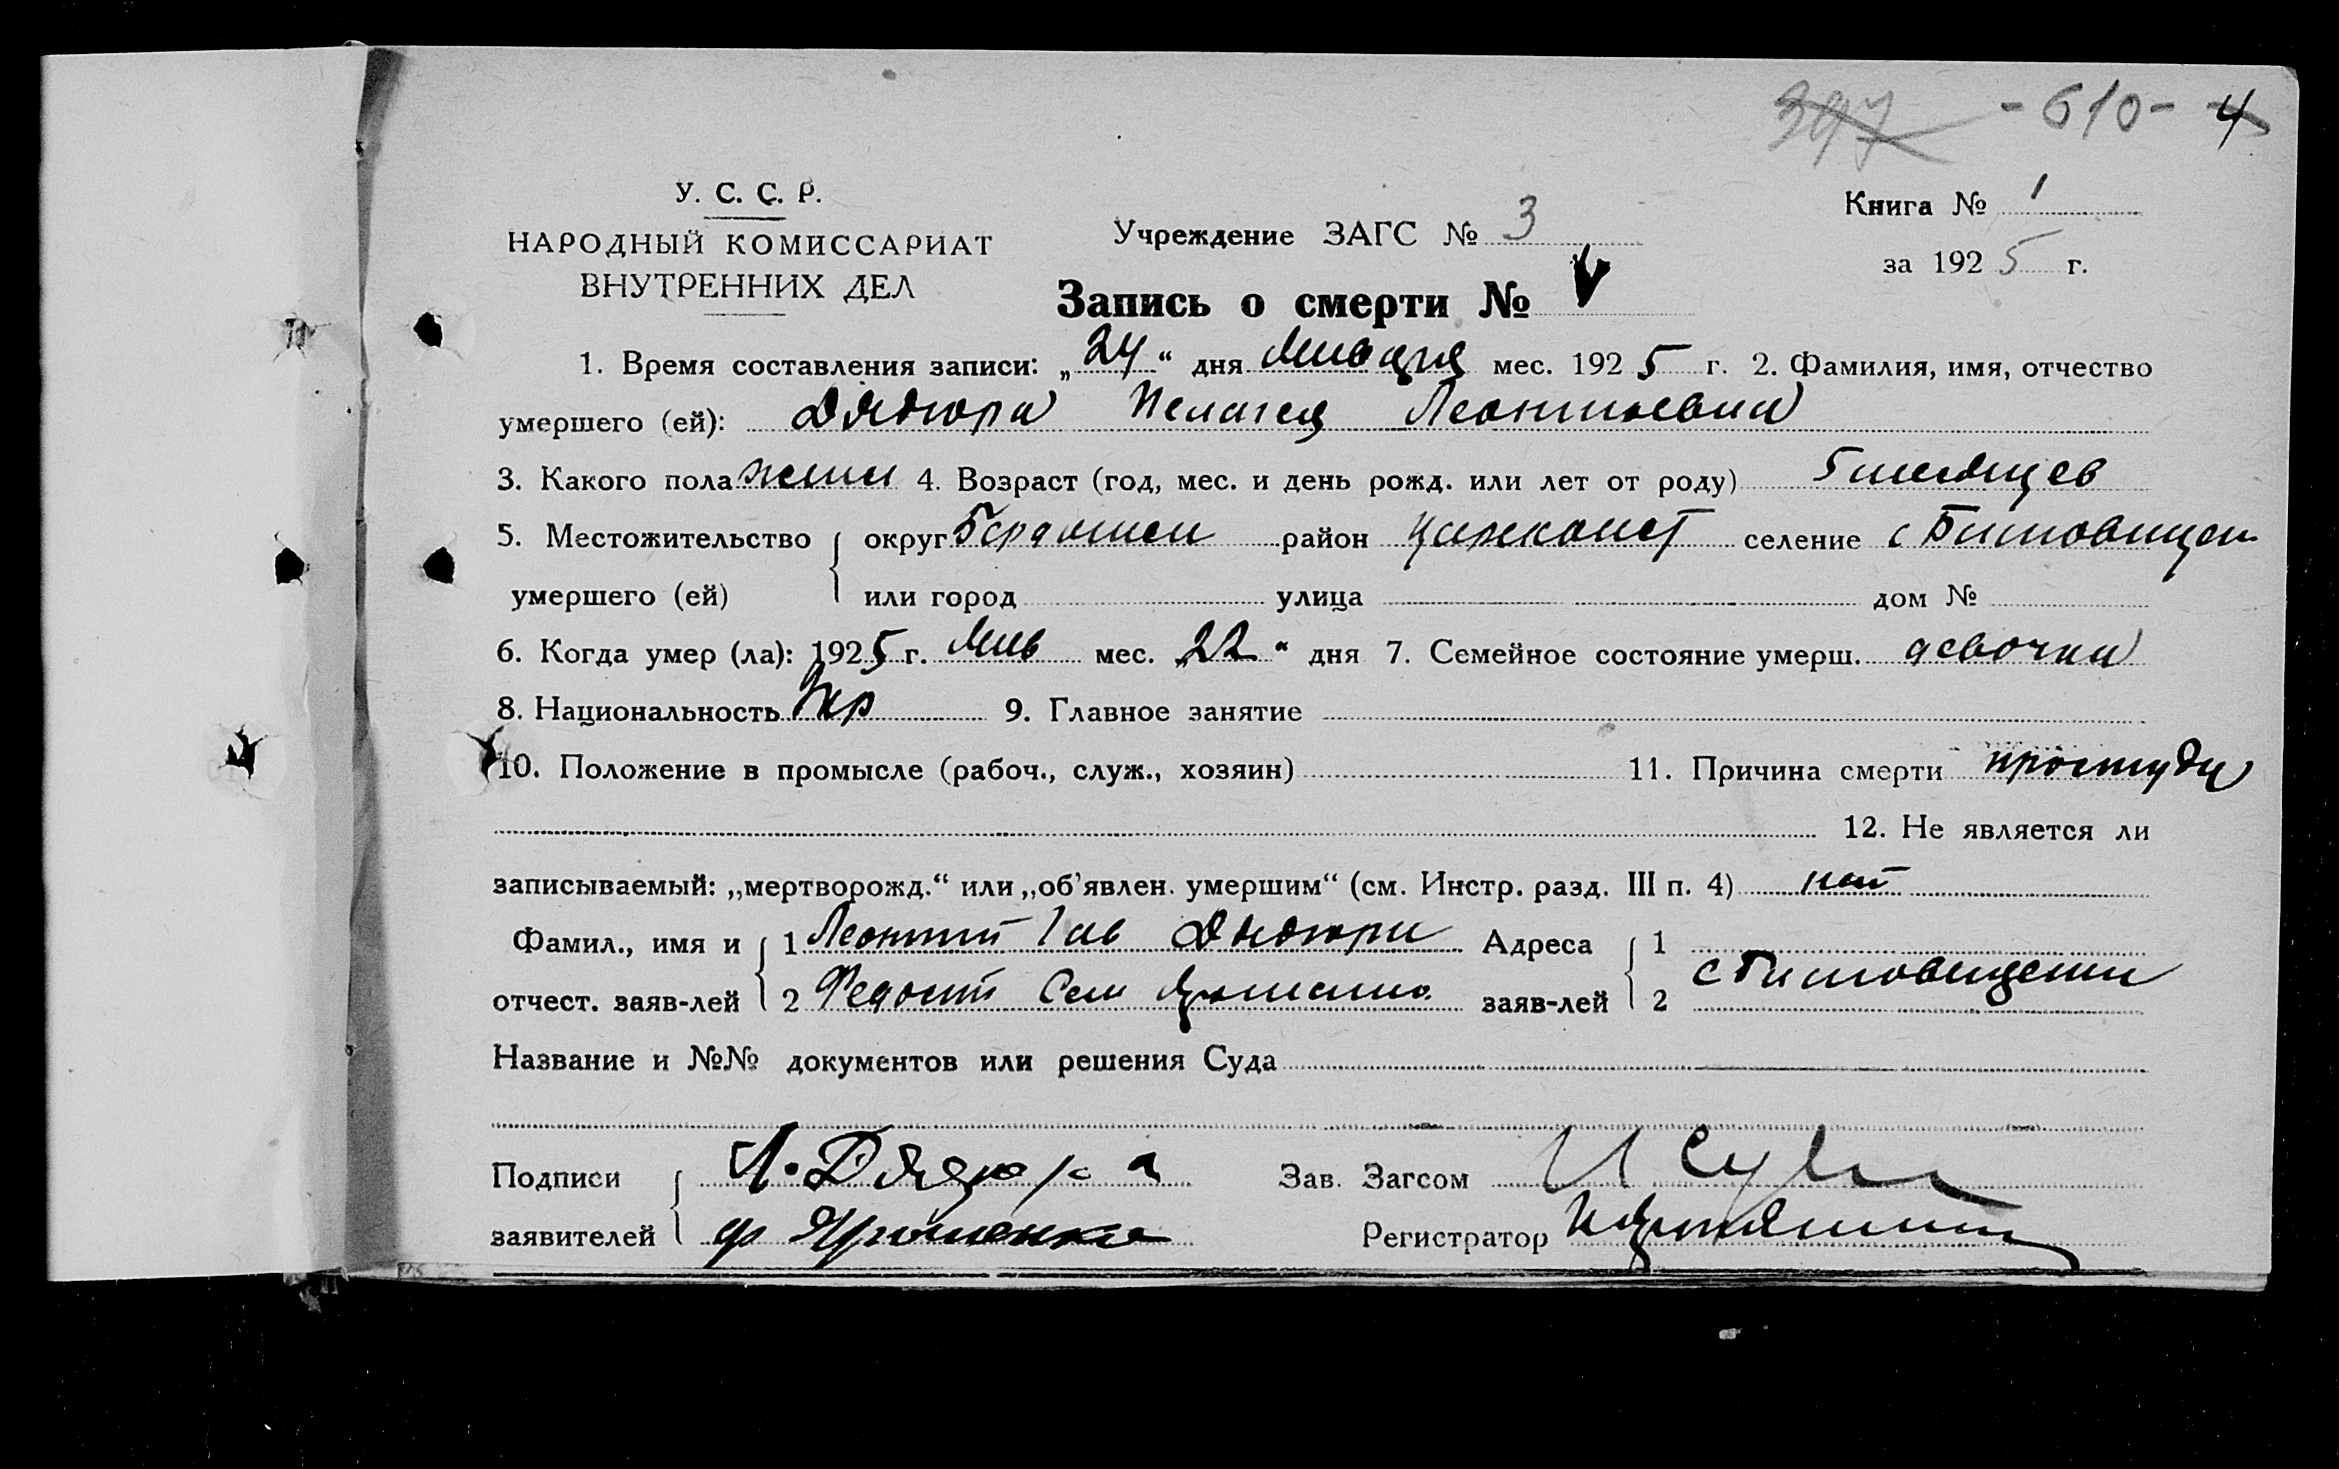 397 - 610 - 4
У. С. С. Р.
НАРОДНЫЙ КОМИССАРИАТ
ВНУТРЕННИХ ДЕЛ
Учреждение ЗАГС № 3
Книга № 1
за 1925 г.
Запись о смерти №
1. Время составления записи: „24“ дня января мес. 1925 г. 2. Фамилия, имя, отчество
умершего (ей): Дядюра Пелагея Леонтьевна
3. Какого пола жен 4. Возраст (год, мес. и день рожд. или лет от роду) 5 месяцев
5. Местожительство округ район Цареконст селение с
умершего (ей) или город улица дом №
6. Когда умер (ла): 1925 г. Янв мес. „22“ дня 7. Семейное состояние умерш. девочка
8. Национальность Укр 9. Главное занятие
10. Положение в промысле (рабоч., служ., хозяин) 11. Причина смерти простуда
12. Не является ли
записываемый: „мертворожд.“ или „об'явлен. умершим“ (см. Инстр. разд. III п. 4) нет
Фамил., имя и 1 Леонтий Гав Дядюра Адреса 1
отчест. заяв-лей 2 Федот Сем Ярошенко заяв-лей 2 с
Название и №№ документов или решения Суда
Подписи Л. Дядюра Зав. Загсом
заявителей Ф Ярошенко Регистратор